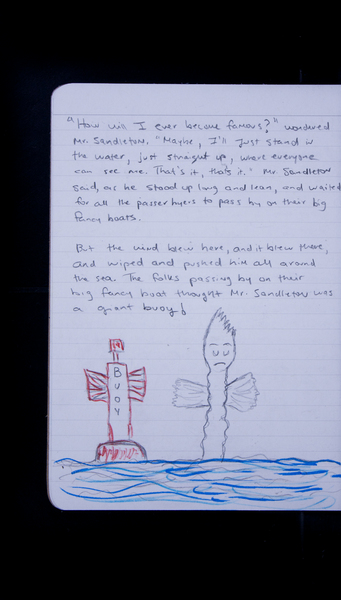 "How will I ever become famous?" wondered
Mr. Sandleton. "Maybe, I'll just stand in
the water, just straight up, where everyone
can see me. That's it, that's it." Mr Sandleton
said, as he stood up long and lean, and waited
for all the passer byers to pass by on their big
fancy boats.
But the wind blew here, and it blew there,
and wiped and pushed him all around
the sea. The folks passing by on their
big fancy boat thought Mr. Sandleton was
a giant buoy!
BUOY